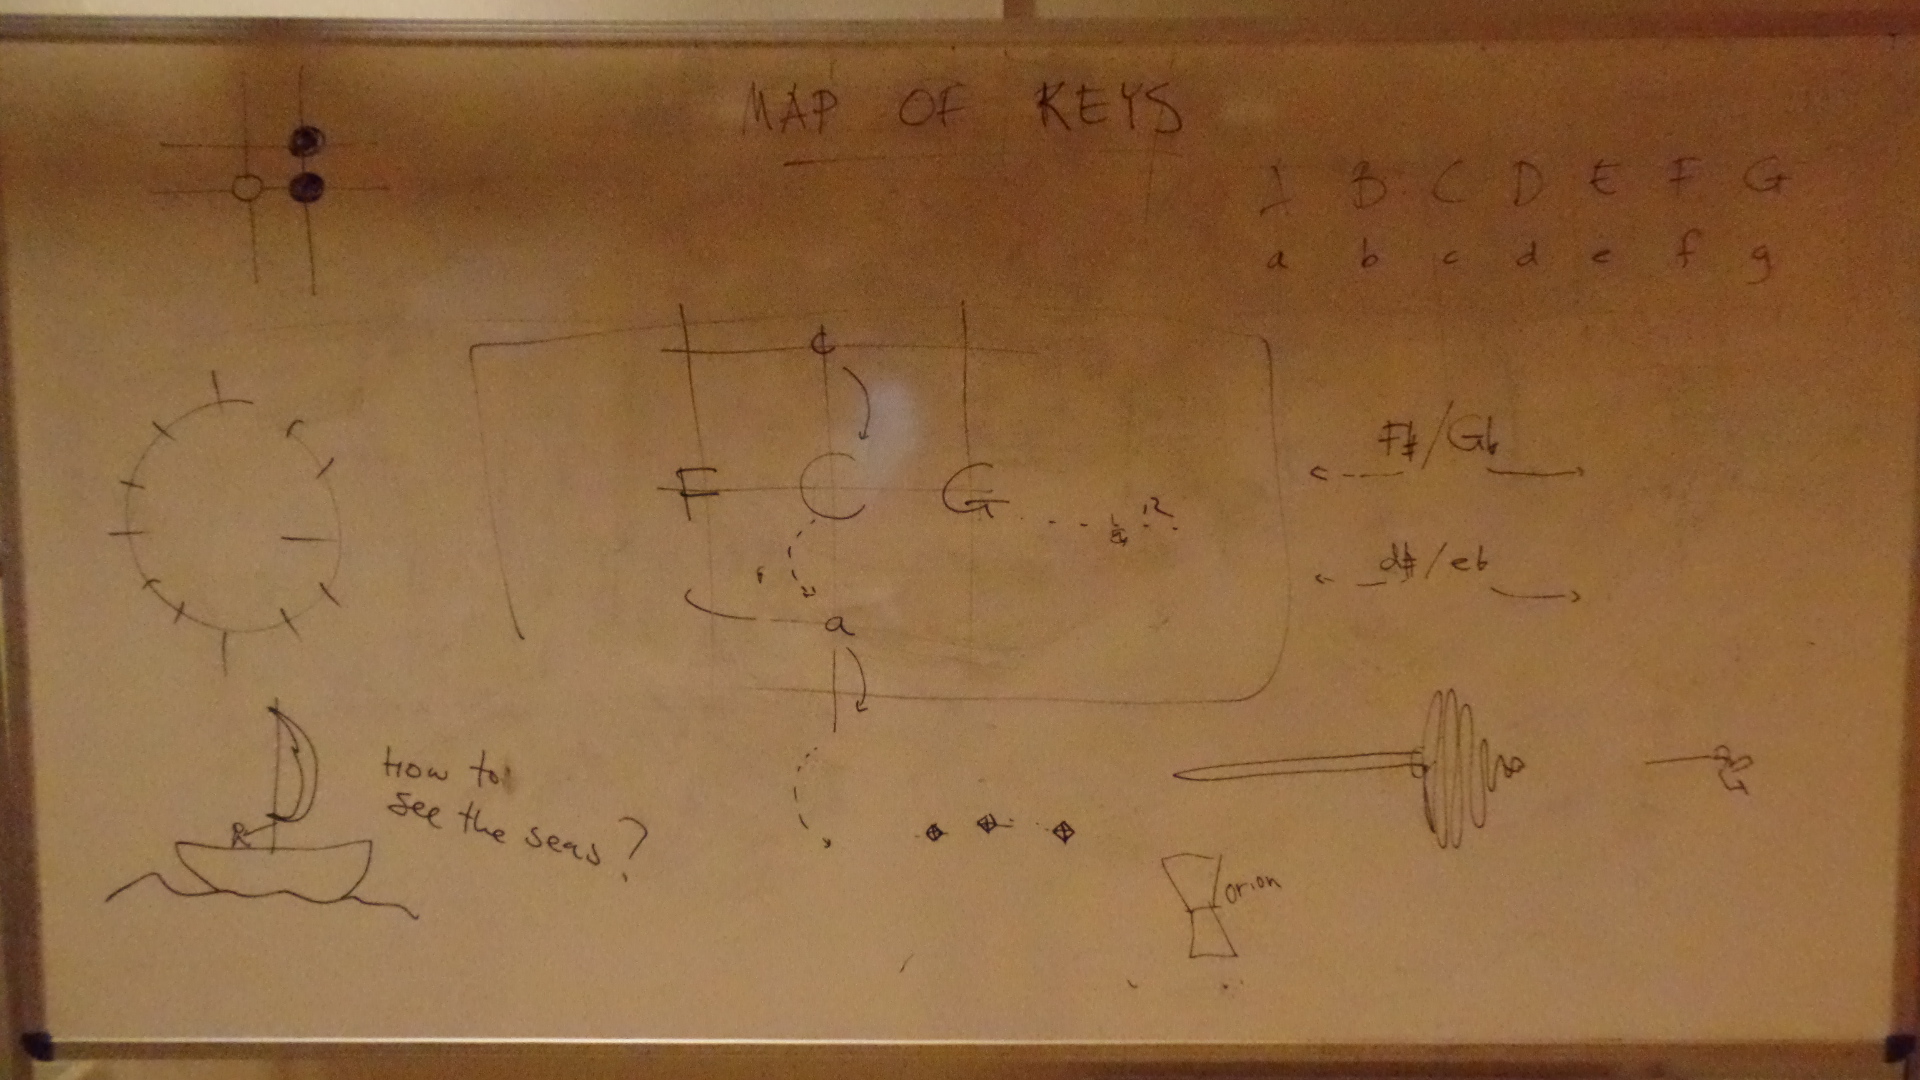 MAP OF KEYS
A B C D E F G
a b c d e f g
c
F C G
F#/Gb
d#/eb
a
How to
see the seas?
orion